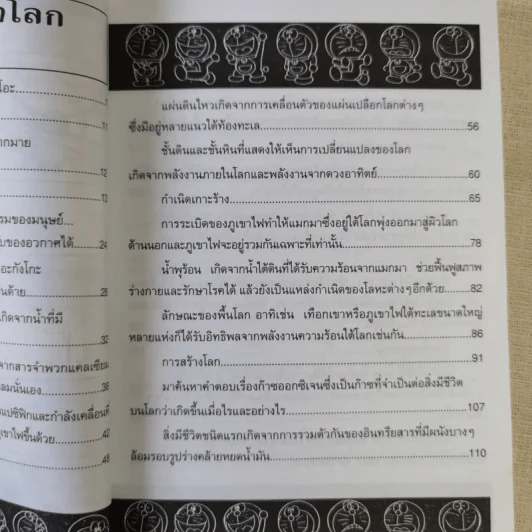 โลก
โอะ
11
ากมาย
12
13
รมของมนุษย์...
บของอวกาศได้ 24
อะกังโกะ
นด้าย 28
เกิดจากน้ำที่มี
32
จากสารจำพวกแคลเซียม
ลมนั่นเอง 36
แปซิฟิกและกำลังเคลื่อนที่
ภูเขาไฟขึ้นด้วย 42
48
แผ่นดินไหวเกิดจากการเคลื่อนตัวของแผ่นเปลือกโลกต่างๆ
ซึ่งมีอยู่หลายแนวใต้ท้องทะเล 56
ชั้นดินและชั้นหินที่แสดงให้เห็นการเปลี่ยนแปลงของโลก
เกิดจากพลังงานภายในโลกและพลังงานจากดวงอาทิตย์ 60
กำเนิดเกาะร้าง 65
การระเบิดของภูเขาไฟทำให้แมกมาซึ่งอยู่ใต้โลกพุ่งออกมาสู่ผิวโลก
ด้านนอกและภูเขาไฟจะอยู่รวมกันเฉพาะที่เท่านั้น 78
น้ำพุร้อน เกิดจากน้ำใต้ดินที่ได้รับความร้อนจากแมกมา ช่วยฟื้นฟูสภาพ
ร่างกายและรักษาโรคได้ แล้วยังเป็นแหล่งกำเนิดของโลหะต่างๆอีกด้วย 82
ลักษณะของพื้นโลก อาทิเช่น เทือกเขาหรือภูเขาไฟใต้ทะเลขนาดใหญ่
หลายแห่งก็ได้รับอิทธิพลจากพลังงานความร้อนใต้โลกเช่นกัน 86
การสร้างโลก 91
มาค้นหาคำตอบเรื่องก๊าซออกซิเจนซึ่งเป็นก๊าซที่จำเป็นต่อสิ่งมีชีวิต
บนโลกว่าเกิดขึ้นเมื่อไรและอย่างไร 107
สิ่งมีชีวิตชนิดแรกเกิดจากการรวมตัวกันของอินทรียสารที่มีผนังบางๆ
ล้อมรอบรูปร่างคล้ายหยดน้ำมัน 110